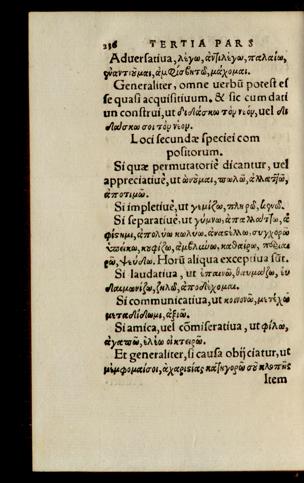 236 TERTIA PARS
Aduersatiua, λέγω, ἀντιλέγω, παλαίω,
ἐναντιοῦμαι, ἀμφισβητῶ, μάχομαι.
Generaliter, omne uerbũ potest es
se quasi acquisitiuum, & sic cum dati
uo construi, ut διδάσκω τὸν νέον, uel δι
δάσκω σοι τὸν νέον.
Loci secundæ speciei com
positorum.
Si quæ permutatoriè dicantur, uel
appreciatiuè, ut ὠνοῦμαι, πωλῶ, ἀλλάττω,
ἀποτιμῶ.
Si impletiuè, ut γεμίζω, πληρῶ,
Si separatiuè, ut γυμνῶ, ἀπαλλάττω, ἀ
φίημι, ἀπολύω κωλύω. ἀναστέλλω. συγχωρῶ
ὑπείκω, κυφίζω, ἀμβλύνω, καθαίρω,
ρῶ, ψεύδω. Horũ aliqua exceptiua sũt.
Si laudatiua, ut ἐπαινῶ, θαυμάζω, εὐ
δαιμονίζω, ζηλῶ, ἀποδέχομαι.
Si communicatiua, ut κοινωνῶ, μετέχω
μεταδίδωμι, ἀξιῶ.
Si amica, uel cõmiseratiua, ut φιλῶ,
ἀγαπῶ, ἐλεῶ οἰκτείρω.
Et generaliter, si causa obijciatur, ut
μέμφομαί σοι, ἀχαριστίας κατηγορῶ σοῦ κλοπῆς
Item